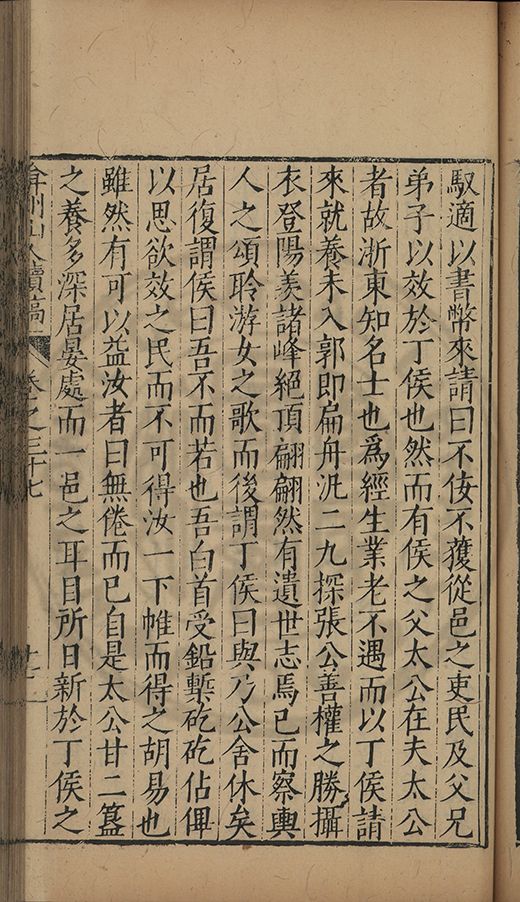 馭適以書幣來請曰不侫不獲從邑之吏民及父兄
弟子以效於丁侯也然而有侯之父太公在夫太公
者故浙東知名士也爲經生業老不遇而以丁侯請
來就養未入郭即扁舟汎二九探張公善權之勝攝
衣登陽羨諸峰絕頂翩翩然有遺世志焉已而察輿
人之頌聆游女之歌而後謂丁侯曰與乃公舍休矣
居復謂侯曰吾不而若也吾白首受鉛槧矻矻佔俾
以思欲效之民而不可得汝一下帷而得之胡易也
雖然有可以益汝者曰無倦而已自是太公甘二簋
之養多深居晏處而一邑之耳目所日新於丁侯之
弇州山人續稿 卷之三十七